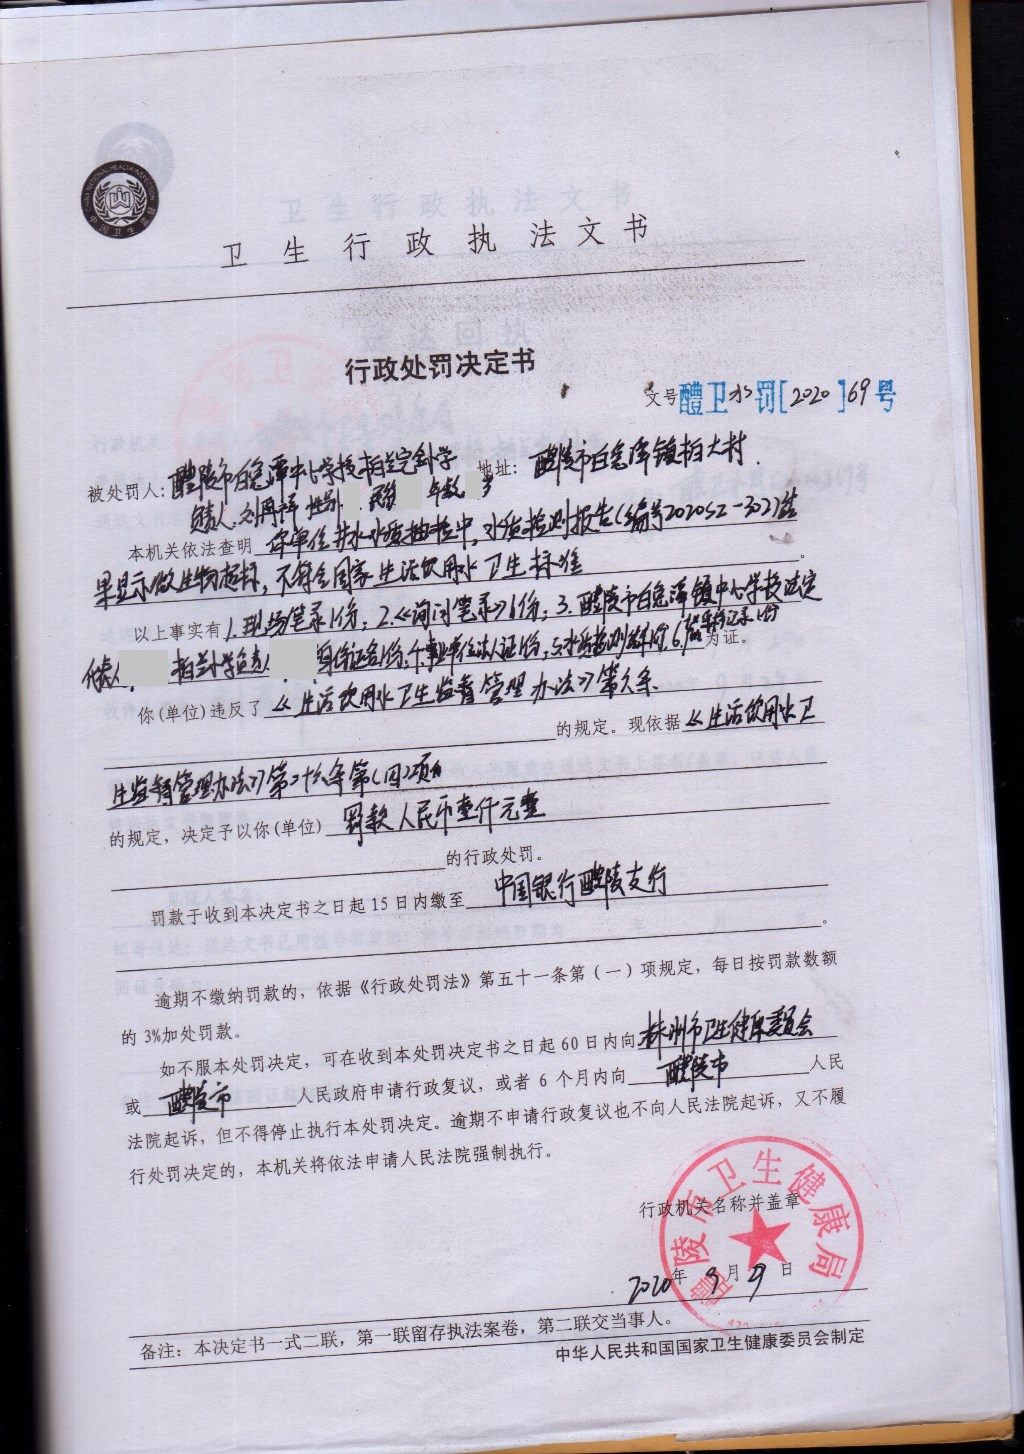 卫生行政执法文书
行政处罚决定书
文号醴卫水罚[2020]69号
被处罚人：醴陵市白兔潭中心学校柏兰完全小学 地址：醴陵市白兔潭镇柏大村.
负责人：刘再祥 性别 民族 年龄 岁
本机关依法查明 你单位井水水质抽检中，水质检测报告（编号2020S2-302）结
果显示微生物超标，不符合国家生活饮用水卫生标准。
以上事实有1.现场笔录1份；2.《询问笔录》1份；3.醴陵市白兔潭镇中心学校法定
代表人 柏兰小学负责人 身份证各1份，4.事业单位法人证1份，5.水质检测 为证。
你（单位）违反了《生活饮用水卫生监督管理办法》第六条
的规定。现依据《生活饮用水卫
生监督管理办法》第二十六条第（四）项
的规定，决定予以你（单位） 罚款人民币壹仟元整
的行政处罚。
罚款于收到本决定书之日起15日内缴至 中国银行醴陵支行
。
逾期不缴纳罚款的，依据《行政处罚法》第五十一条第（一）项规定，每日按罚款数额
的 3%加处罚款。
如不服本处罚决定，可在收到本处罚决定书之日起60日内向株洲市卫生健康委员会
或 醴陵市 人民政府申请行政复议，或者 6 个月内向 醴陵市 人民
法院起诉，但不得停止执行本处罚决定。逾期不申请行政复议也不向人民法院起诉，又不履
行处罚决定的，本机关将依法申请人民法院强制执行。
行政机关名称并盖章
醴陵市卫生健康局
2020年9月9日
备注：本决定书一式二联，第一联留存执法案卷，第二联交当事人。
中华人民共和国国家卫生健康委员会制定